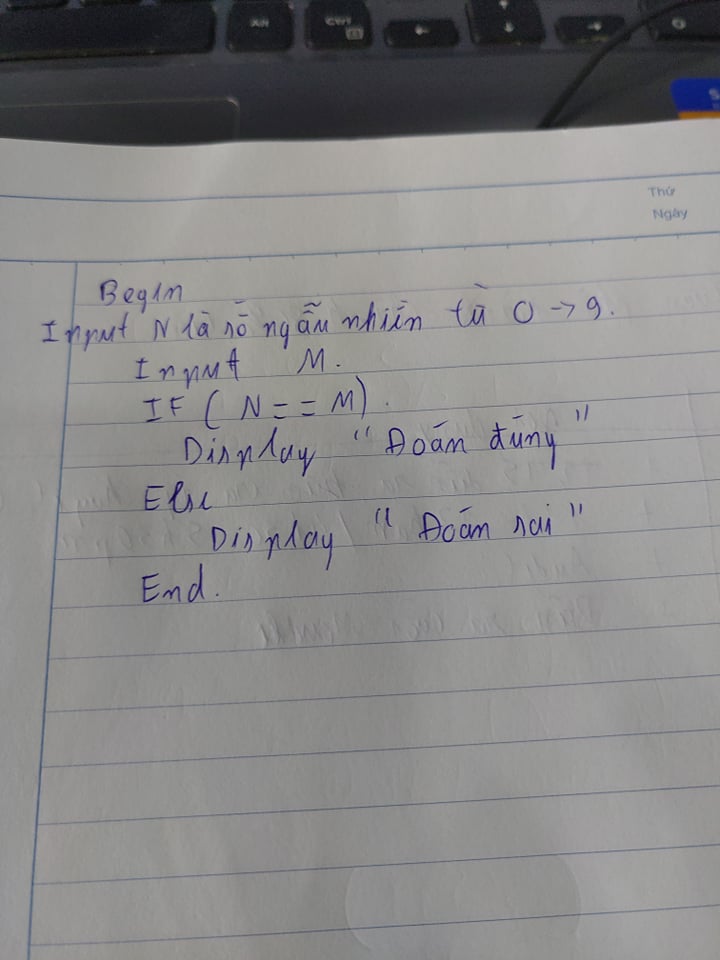 Alt
Ctrl
Thứ
Ngày
Begin
Input N là số ngẫu nhiên từ 0 -> 9.
Input M.
IF ( N == M ).
Display "Đoán đúng"
Else
Display "Đoán sai"
End.